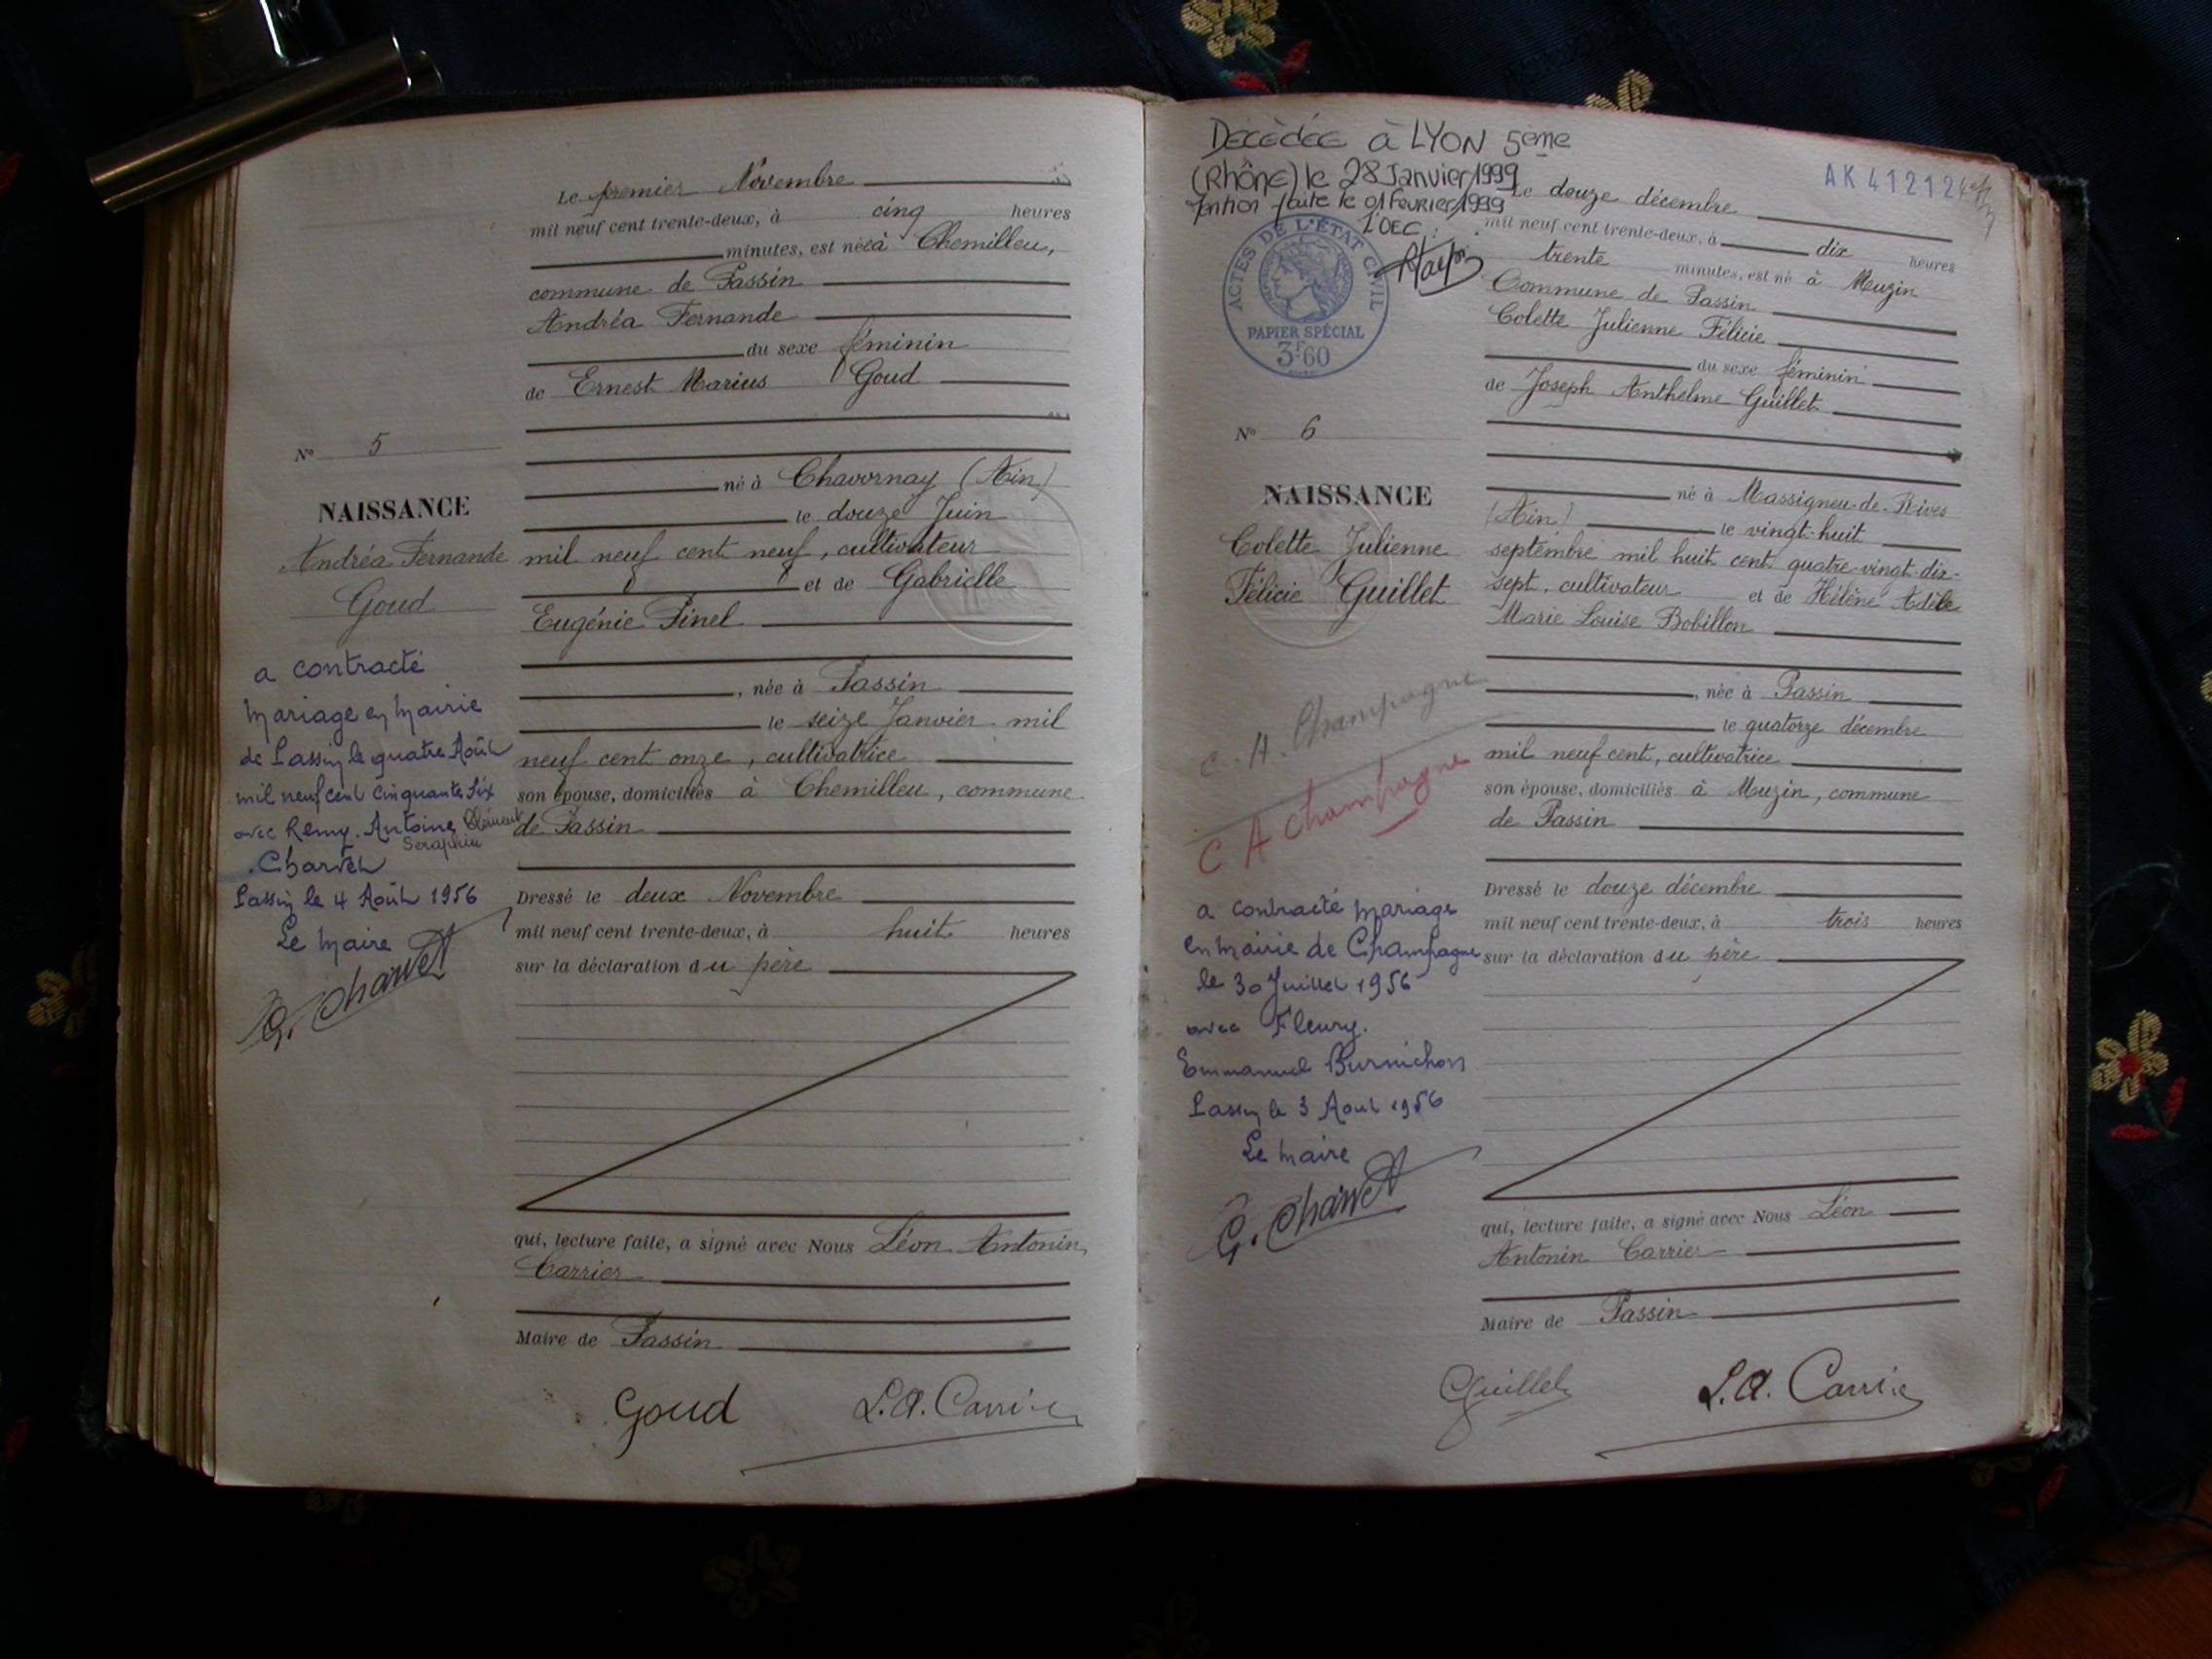 Le premier Novembre
mil neuf cent trente-deux, à cinq heures
minutes, est née à Chemilleu,
commune de Passin
Andréa Fernande
du sexe féminin
de Ernest Marius Goud
né à Chavornay (Ain)
le douze Juin
mil neuf cent neuf, cultivateur
et de Gabrielle
Eugénie Pinel
, née à Passin
le seize Janvier mil
neuf cent onze, cultivatrice
son épouse, domiciliés à Chemilleu, commune
de Passin
Dressé le deux Novembre
mil neuf cent trente-deux, à huit heures
sur la déclaration du père
qui, lecture faite, a signé avec Nous Léon Antonin
Carrier
Maire de Passin
Goud L.A. Carrier
N° 5
NAISSANCE
Andréa Fernande
Goud
a contracté
mariage en mairie
de Passin le quatre Août
mil neuf cent cinquante six
avec Remy. Antoine Clément
Seraphin
Charvet
Passin le 4 Août 1956
Le Maire
G. Charvet
Décédée à LYON 5ème
(Rhône) le 28 Janvier 1999
mention faite le 01 février 1999
l'OEC :
ACTES DE L'ÉTAT CIVIL
PAPIER SPÉCIAL
3F60
AK 41212
Le douze décembre
mil neuf cent trente-deux, à dix heures
trente minutes, est né à Muzin
Commune de Passin
Colette Julienne Félicie
du sexe féminin
de Joseph Anthelme Guillet
né à Massignieu-de-Rives
(Ain) le vingt-huit
septembre mil huit cent quatre-vingt-dix-
sept, cultivateur et de Hélène Adèle
Marie Louise Bobillon
, née à Passin
le quatorze décembre
mil neuf cent, cultivatrice
son épouse, domiciliés à Muzin, commune
de Passin
Dressé le douze décembre
mil neuf cent trente-deux, à trois heures
sur la déclaration du père
qui, lecture faite, a signé avec Nous Léon
Antonin Carrier
Maire de Passin
Guillet L.A. Carrier
N° 6
NAISSANCE
Colette Julienne
Félicie Guillet
C. A. Champagne
C A Champagne
a contracté mariage
en mairie de Champagne
le 30 Juillet 1956
avec Fleury.
Emmanuel Burnichon
Passin le 3 Août 1956
Le Maire
G. Charvet